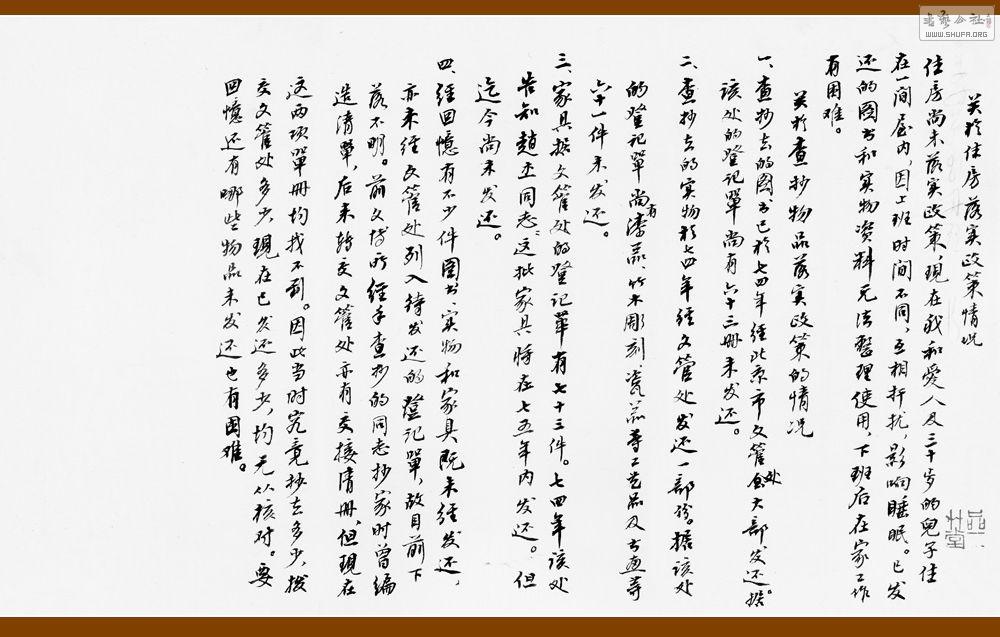 关於住房落实政策情况
住房尚未落实政策，現在我和爱人及三十岁的兒子住
在一間屋内，因上班时间不同，互相干扰，影响睡眠。已发
还的图书和实物资料无法整理使用，下班后在家工作
有困难。
关於查抄物品落实政策的情况
一、查抄去的图书已於七四年经北京市文管处大部发还，据
该处的登记單尚有六十三冊未发还。
二、查抄去的实物於七四年经文管处发还一部份。据该处
的登记單尚有漆器、竹木彫刻、瓷器等工艺品及书画等
六十一件未发还。
三、家具据文管处的登记單有七十三件。七四年该处
告知趙丕同志：这批家具將在七五年内发还。但
迄今尚未发还。
四、经回憶有不少件图书、实物和家具既未经发还，
亦未经文管处列入待发还的登记單，故目前下
落不明。前文博所经手查抄的同志抄家时曾编
造清單，后来转交文管处亦有交接清冊，但現在
这两项單冊均找不到。因此当时究竟抄去多少，拨
交文管处多少，現在已发还多少，均无从核对。要
回憶还有哪些物品未发还也有困难。
书艺公社
WWW.SHUFA.ORG